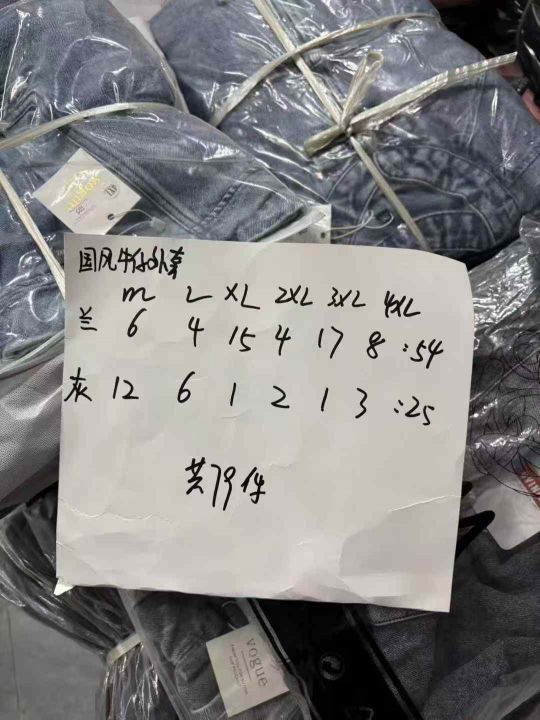 国风牛仔外套
m L XL 2XL 3XL 4XL
兰 6 4 15 4 17 8 :54
灰 12 6 1 2 1 3 :25
共79件
vogue